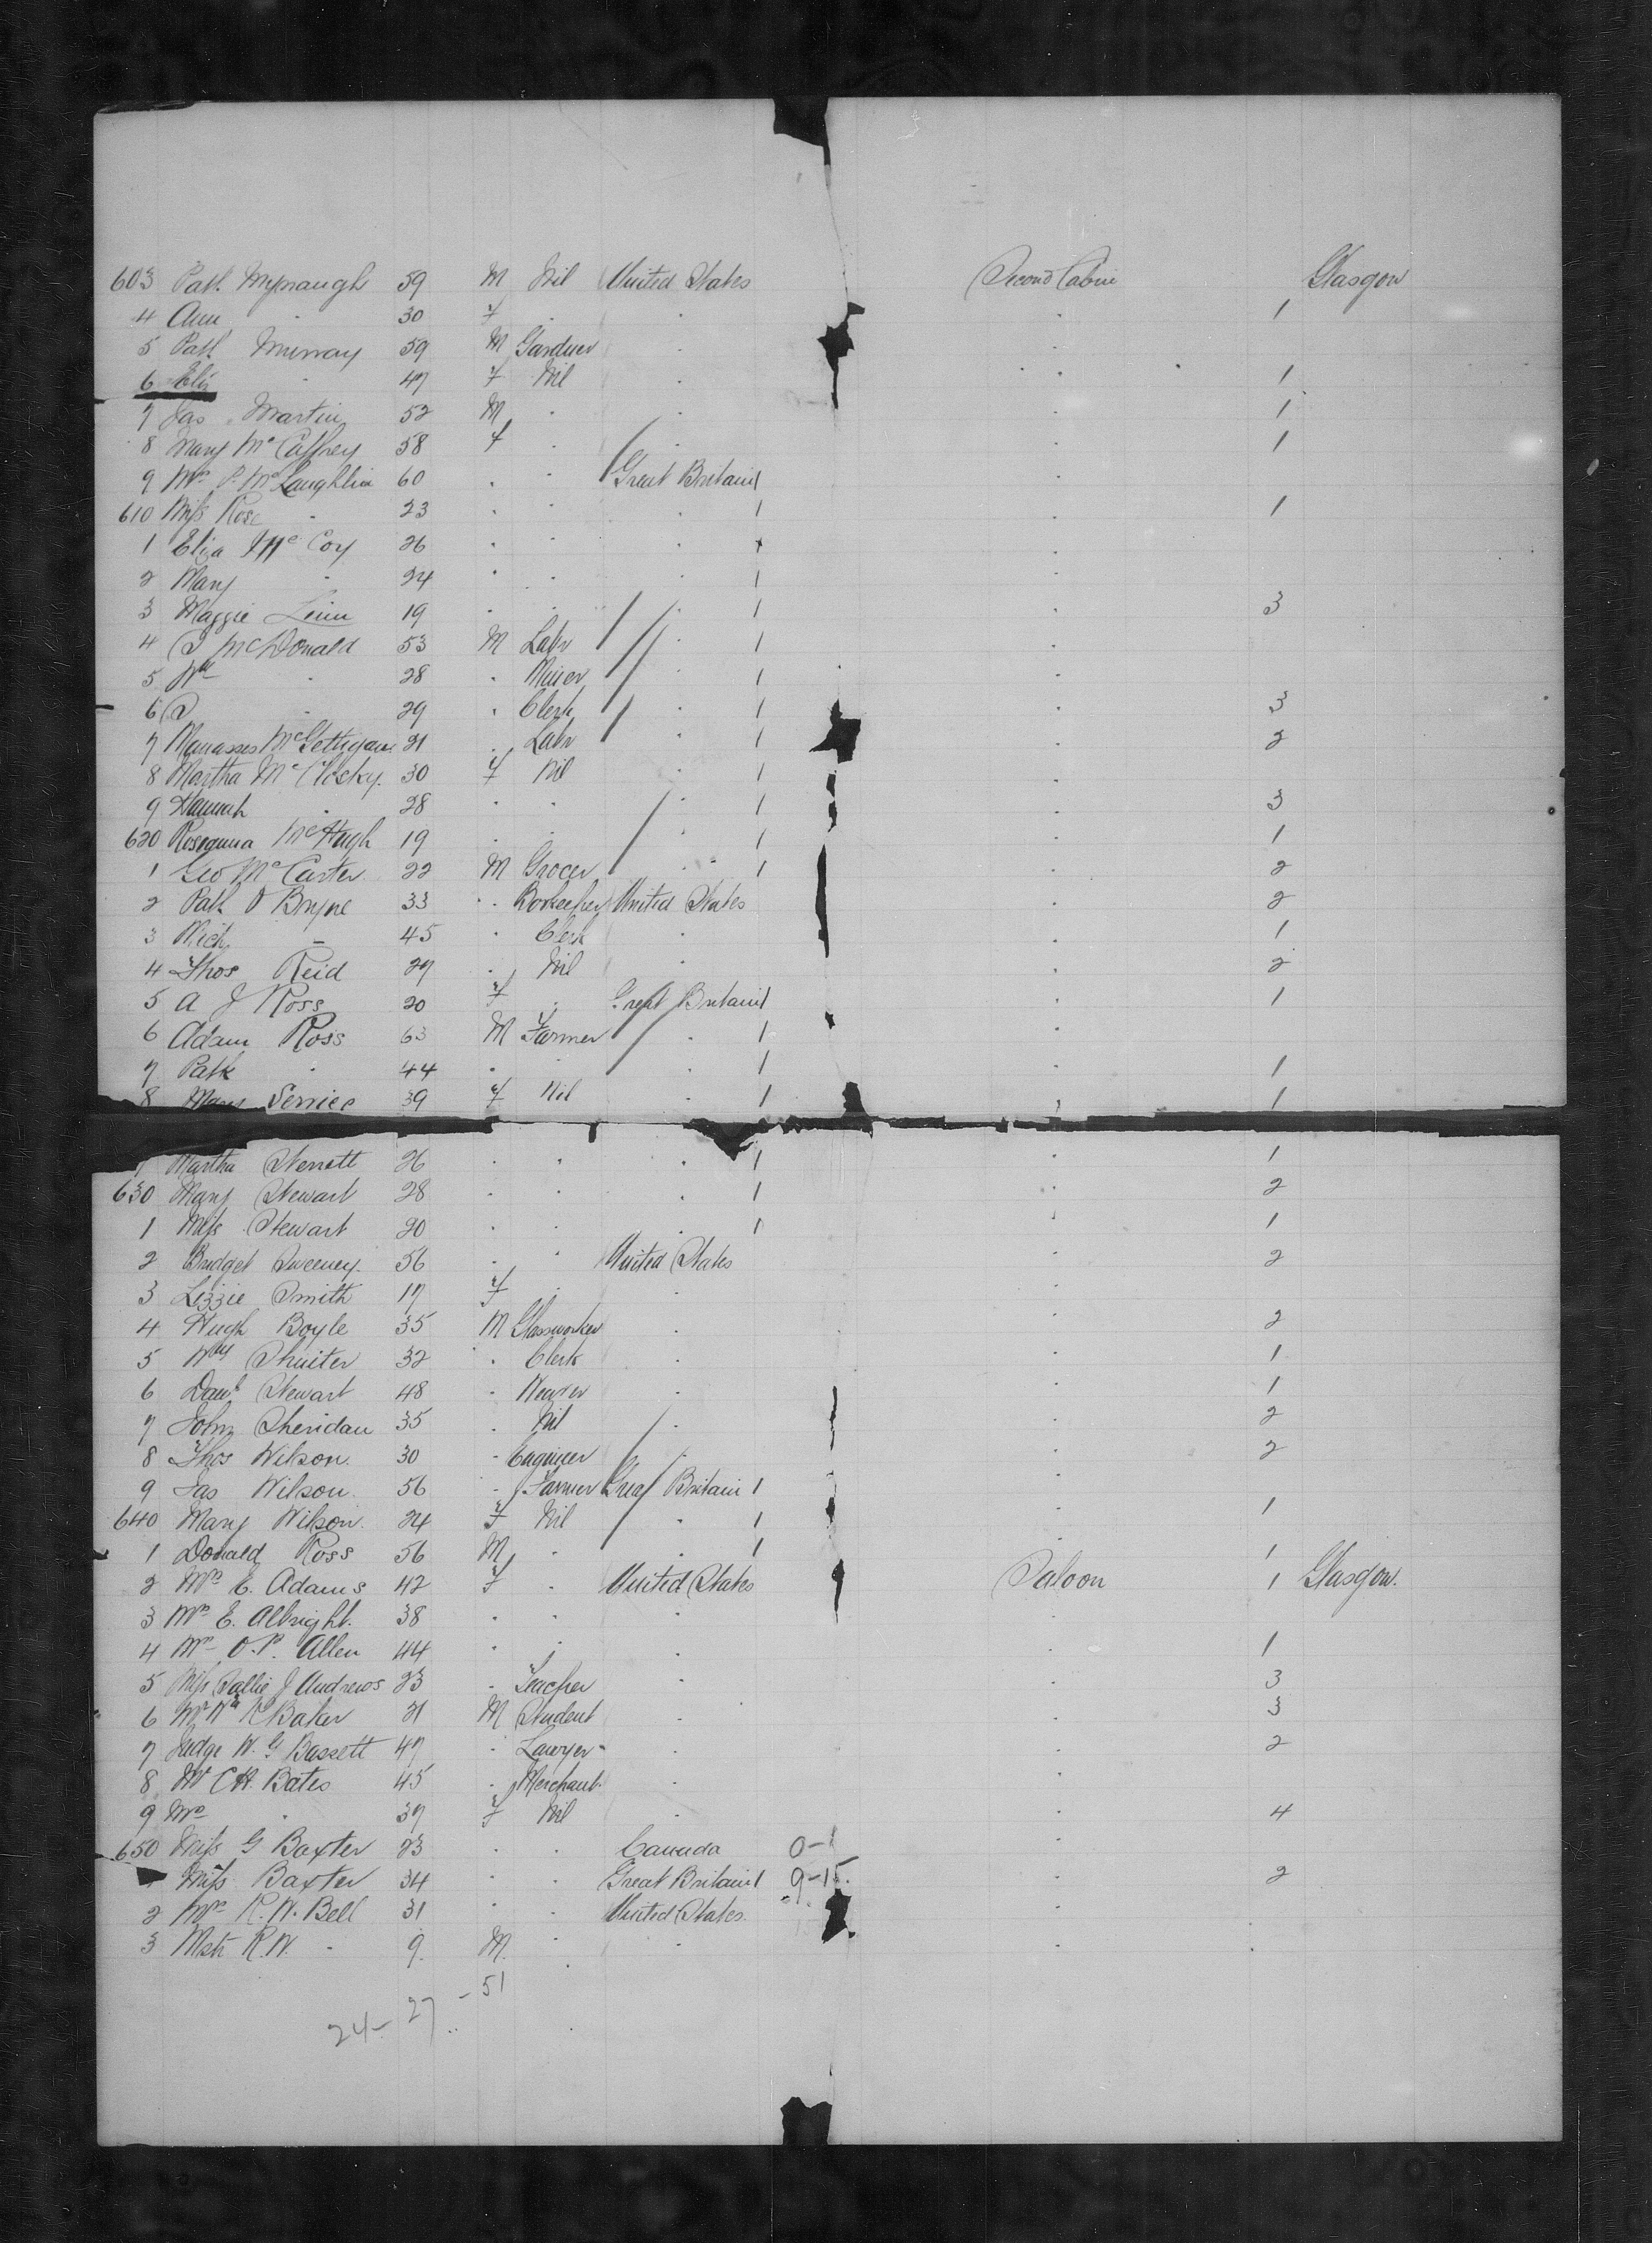 603 Patk 59 M Nil United States Second Cabin Glasgow
4 Ann " 30 F " " " 1
5 Patk Murray 59 M Gardner " "
6 Eliz " 47 F Nil " " 1
7 Jas Martin 52 M " " " 1
8 Mary McCaffrey 58 F " " " 1
9 Mrs P. McLaughlin 60 " " Great Britain 1 "
610 Miss Rose " 23 " " " 1 " 1
1 Eliza McCoy 26 " " " 1 "
2 Mary " 24 " " " 1 "
3 Maggie Linn 19 " " " 1 " 3
4 McDonald 53 M Labr " 1 "
5 Wm " 28 " Miner " 1 "
6 " 29 " Clerk " 1 " 3
7 Manasses McGettigan 21 " Labr " 1 " 2
8 Martha McClosky 30 F Nil " 1 "
9 Hannah " 28 " " " 1 " 3
620 Roseanna McHugh 19 " " " 1 " 1
1 Geo McCarter 22 M Grocer " 1 " 2
2 Patk O Bryne 33 " Bookeeper United States " 2
3 Mich " 45 " Clerk " " 1
4 Thos Reid 27 " Nil " " 2
5 A J Ross 20 F " Great Britain 1 " 1
6 Adam Ross 63 M Farmer " 1 "
7 Patk " 44 " " " 1 " 1
8 Mary Service 39 F Nil " 1 " 1
Martha Sterrett 26 " " " 1 " 1
630 Mary Stewart 28 " " " 1 " 2
1 Miss Stewart 20 " " " 1 " 1
2 Bridget Sweeney 56 " " United States " 2
3 Lizzie Smith 17 F " " "
4 Hugh Boyle 35 M Glassworker " " 2
5 Wm 32 " Clerk " " 1
6 Danl Stewart 48 " Weaver " " 1
7 John Sheridan 35 " Nil " " 2
8 Thos Wilson 30 " Engineer " " 2
9 Jas Wilson 56 " Farmer Great Britain 1 "
640 Mary Wilson 24 F Nil " 1 " 1
1 Donald Ross 56 M " " 1 " 1
2 Mrs E. Adams 42 F " United States Saloon 1 Glasgow.
3 Mrs E. Albright. 38 " " " "
4 Mrs O.P. Allen 44 " " " " 1
5 Miss Sallie J Andrews 23 " Teacher " " 3
6 Mr Wm K Baker 21 M Student " " 3
7 Judge W. G Bassett 47 " Lawyer " " 2
8 Mr C H. Bates 45 " Merchant " "
9 Mrs " 37 F Nil " " 4
650 Miss G Baxter 23 " " Canada 0-1 "
Miss Baxter 34 " " Great Britain 1 9-15. " 2
2 Mrs R. W. Bell 31 " " United States "
3 Mstr R.W. " 9 M. " " "
24- 27 - 51